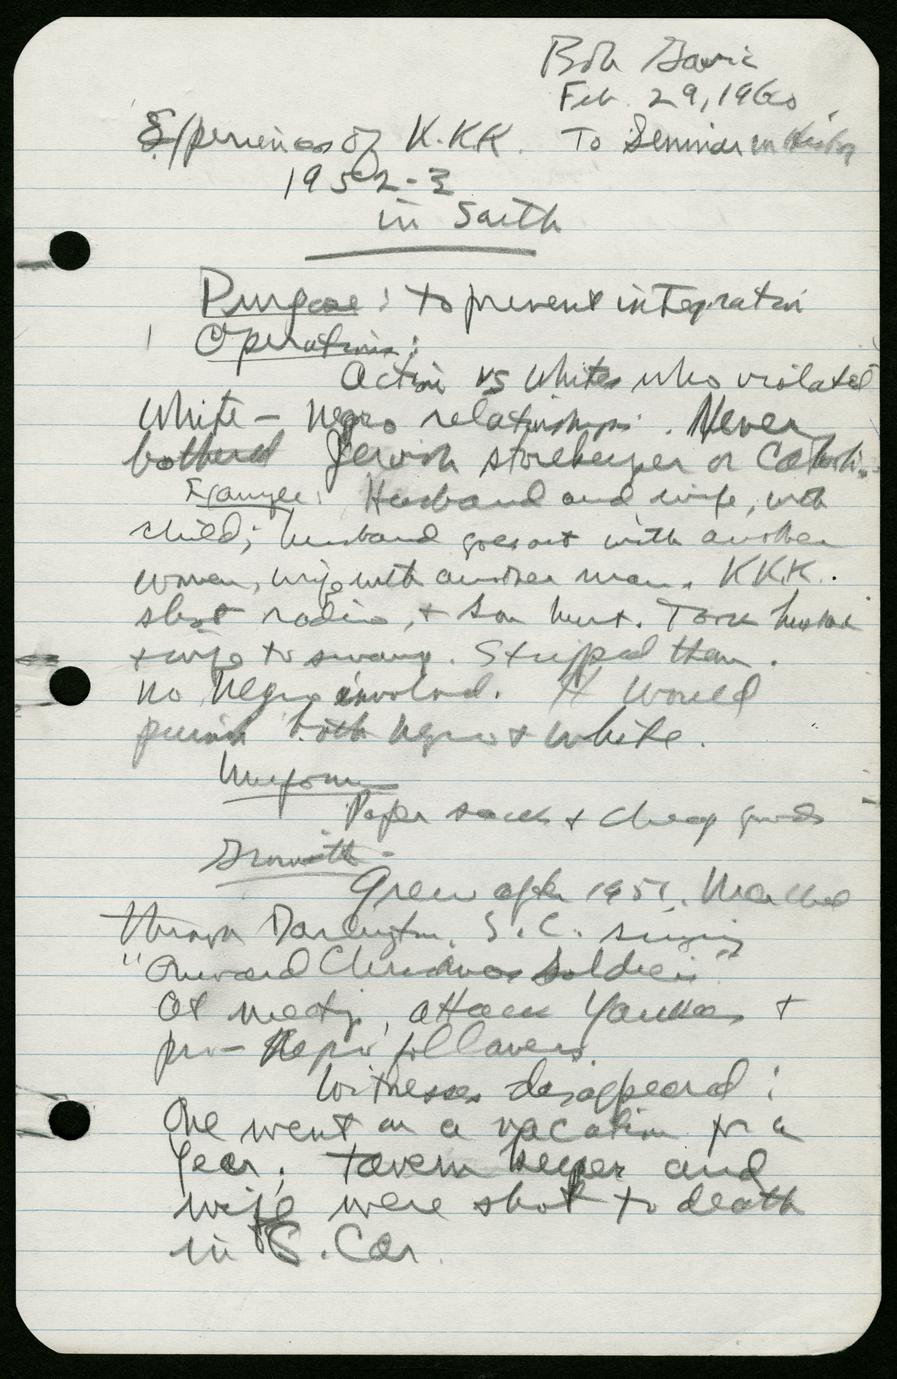 Bob
Feb. 29, 1960
Experiences of K.KK. To Seminar in History
1952-3
in South
Purpose: to prevent integration
Operations:
Action vs Whites who violated
White - Negro relationships. Never
bothered Jewish storekeeper or Catholic.
Example: Husband and wife, with
child; husband goes out with another
woman, wife with another man. KKK.
shot radio, & son hurt. Took husband
& wife to swamp. Stripped them.
No Negro involved. It would
punish both Negro & white.
Uniform
Paper sacks & cheap goods
Growth -
Grew after 1951. Marched
through Darlington, S.C. singing
"Onward Christian Soldiers"
At meeting, attack Yankees &
pro-Negro followers.
Witnesses disappeared:
One went on a vacation for a
year; tavern keeper and
wife were shot to death
in S. Car.